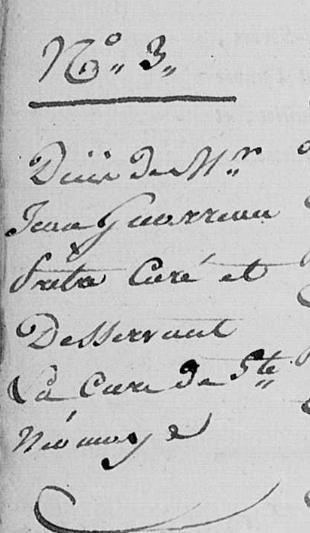 N.º 3.
Décès de M.r
Jean Guerreau
Prêtre Curé et
Desservant
La Cure de Ste
Néomaye